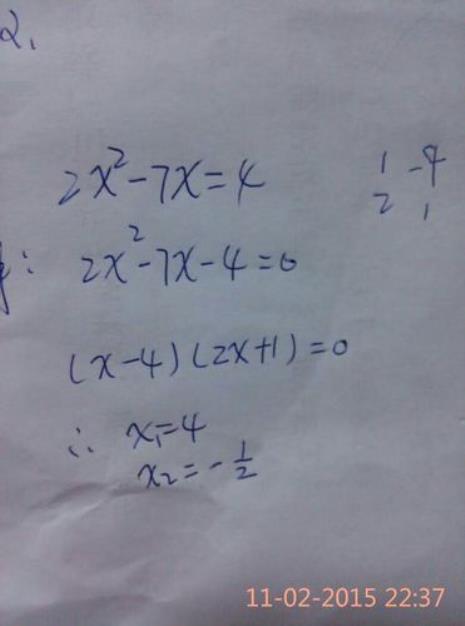 2.
2x²-7x=4
1 -4
2 1
: 2x²-7x-4=0
(x-4)(2x+1)=0
∴ x₁=4
x₂=-1/2
11-02-2015 22:37